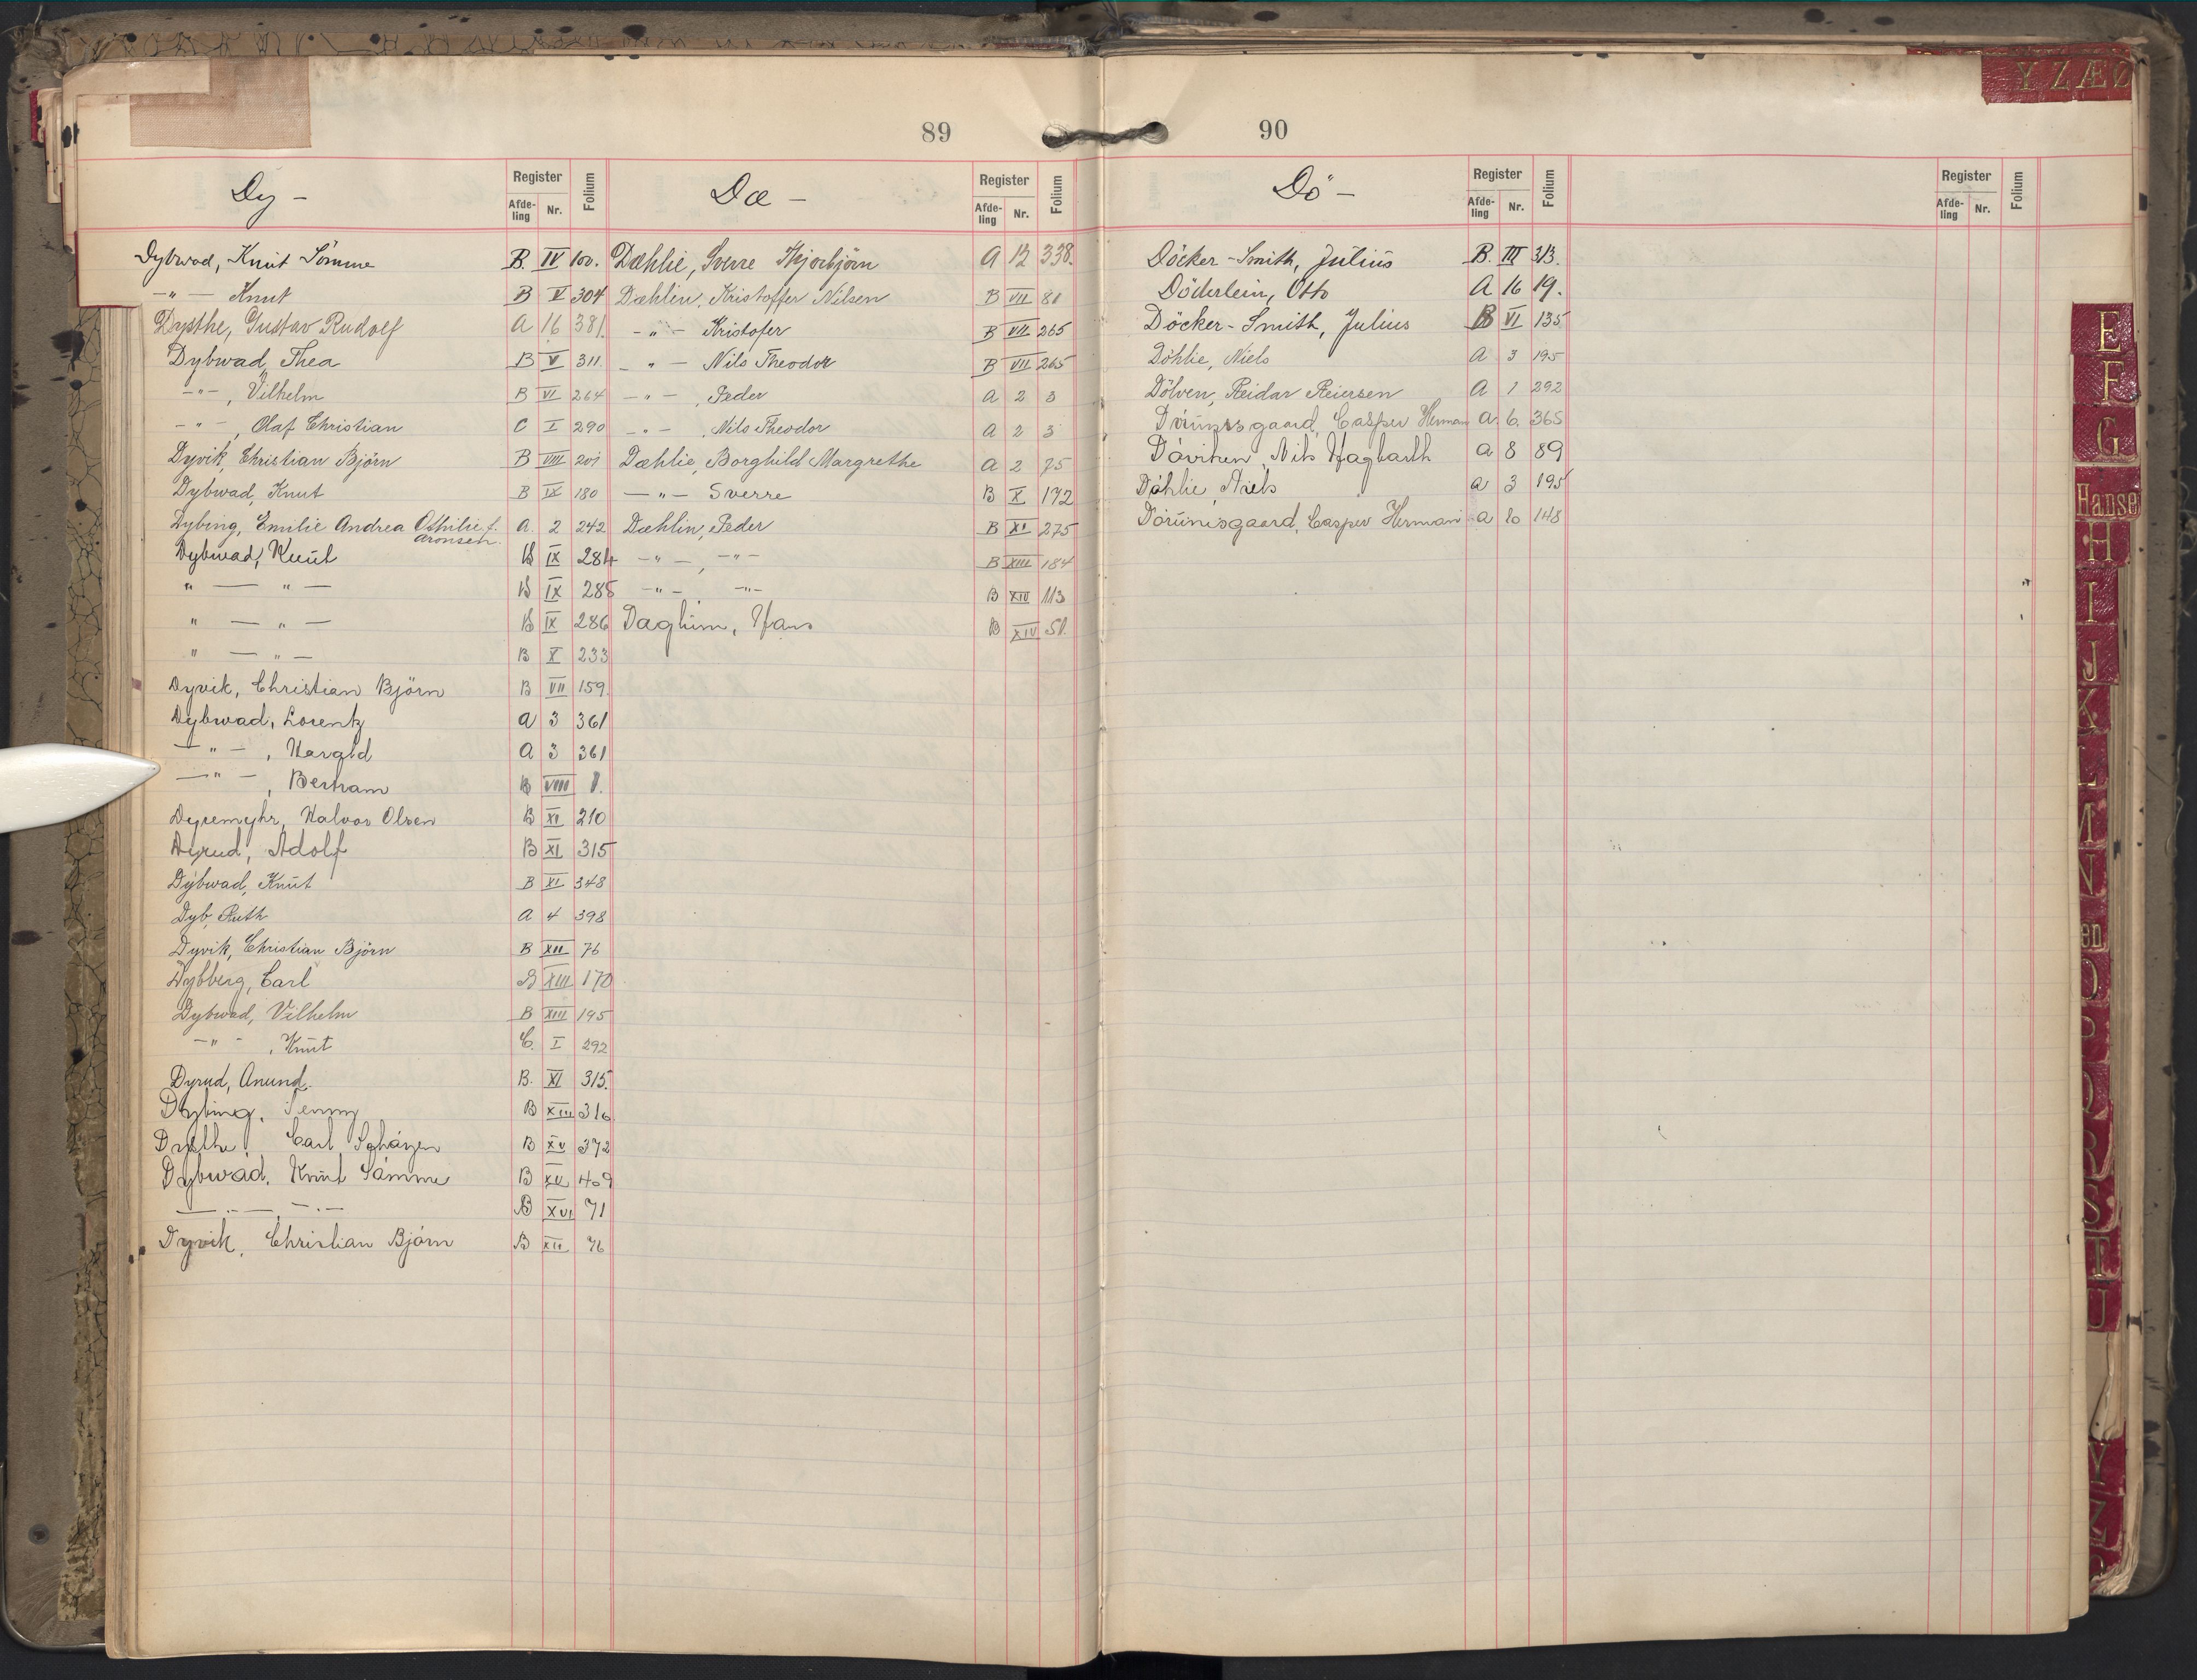 89
Dy -
Register
Afde-ling Nr. Folium
Dybwad, Knut Sömme B. IV 100.
-"- Knut B V 304
Dysthe, Gustav Rudolf A 16 381.
Dybwad, Thea B V 311.
-"-, Vilhelm B VI 264
-"-, Olaf Christian C I 290
Dyvik, Christian Björn B VIII 201
Dybwad, Knut B IX 180
Dybing, Emilie Andrea Othilie f. A. 2 242
Aronsen.
Dybwad, Knut B IX 284
" — " — B IX 285
" — " — B IX 286
" — " — B X 233
Dyvik, Christian Björn B VII 159.
Dybwad, Lorentz A 3 361
-"-, Harald A 3 361
-"-, Bertram B VIII 1.
Dyremyhr, Halvor Olsen B XI 210
Dyrud, Adolf B XI 315
Dybwad, Knut B XI 348
Dyb, Ruth A 4 398
Dyvik, Christian Björn B XII 76
Dybberg, Carl B XIII 170
Dybwad, Vilhelm B XIII 195
-"-, Knut C. I 292
Dyrud, Anund. B. XI 315.
Dybing, Jenny B XIII 316
Dysthe, Carl B XV 372
Dybwad, Knut Sömme B XV 409
— . —, — . — B XVI 71
Dyvik, Christian Björn B XII 76
Dæ -
Register
Afde-ling Nr. Folium
Dæhlie, Sverre Thjorbjörn A 12 338.
Dæhlin, Kristoffer Nilsen B VII 81
-"- Kristofer B VII 265
-"- Nils Theodor B VII 265
-"-, Peder A 2 3
-"-, Nils Theodor A 2 3
Dæhlie, Borghild Margrethe A 2 75
-"- Sverre B X 172
Dæhlin, Peder B XI 275
-"-, -"- B XIII 184
-"-, -"- B XIV 113
Daglum, Hans B XIV 51.
90
Dö -
Register
Afde-ling Nr. Folium
Döcker-Smith, Julius B. III 313.
Döderlein, Otto A 16 19.
Döcker-Smith, Julius B VI 135
Döhlie, Niels A 3 195
Dölven, Reidar Reiersen A 1 292
Dörumsgaard, Casper Herman A. 6. 365
Döviken, Nils Hagbarth A 8 89
Döhlie, Niels A 3 195
Dörumsgaard, Casper Herman A 10 148
Register
Afde-ling Nr. Folium
Y Z Æ Ø
E
F
G
Hanse
H
I
J
K
L
M
N
en
O
P
Q
R
S
T
U
Y
Z